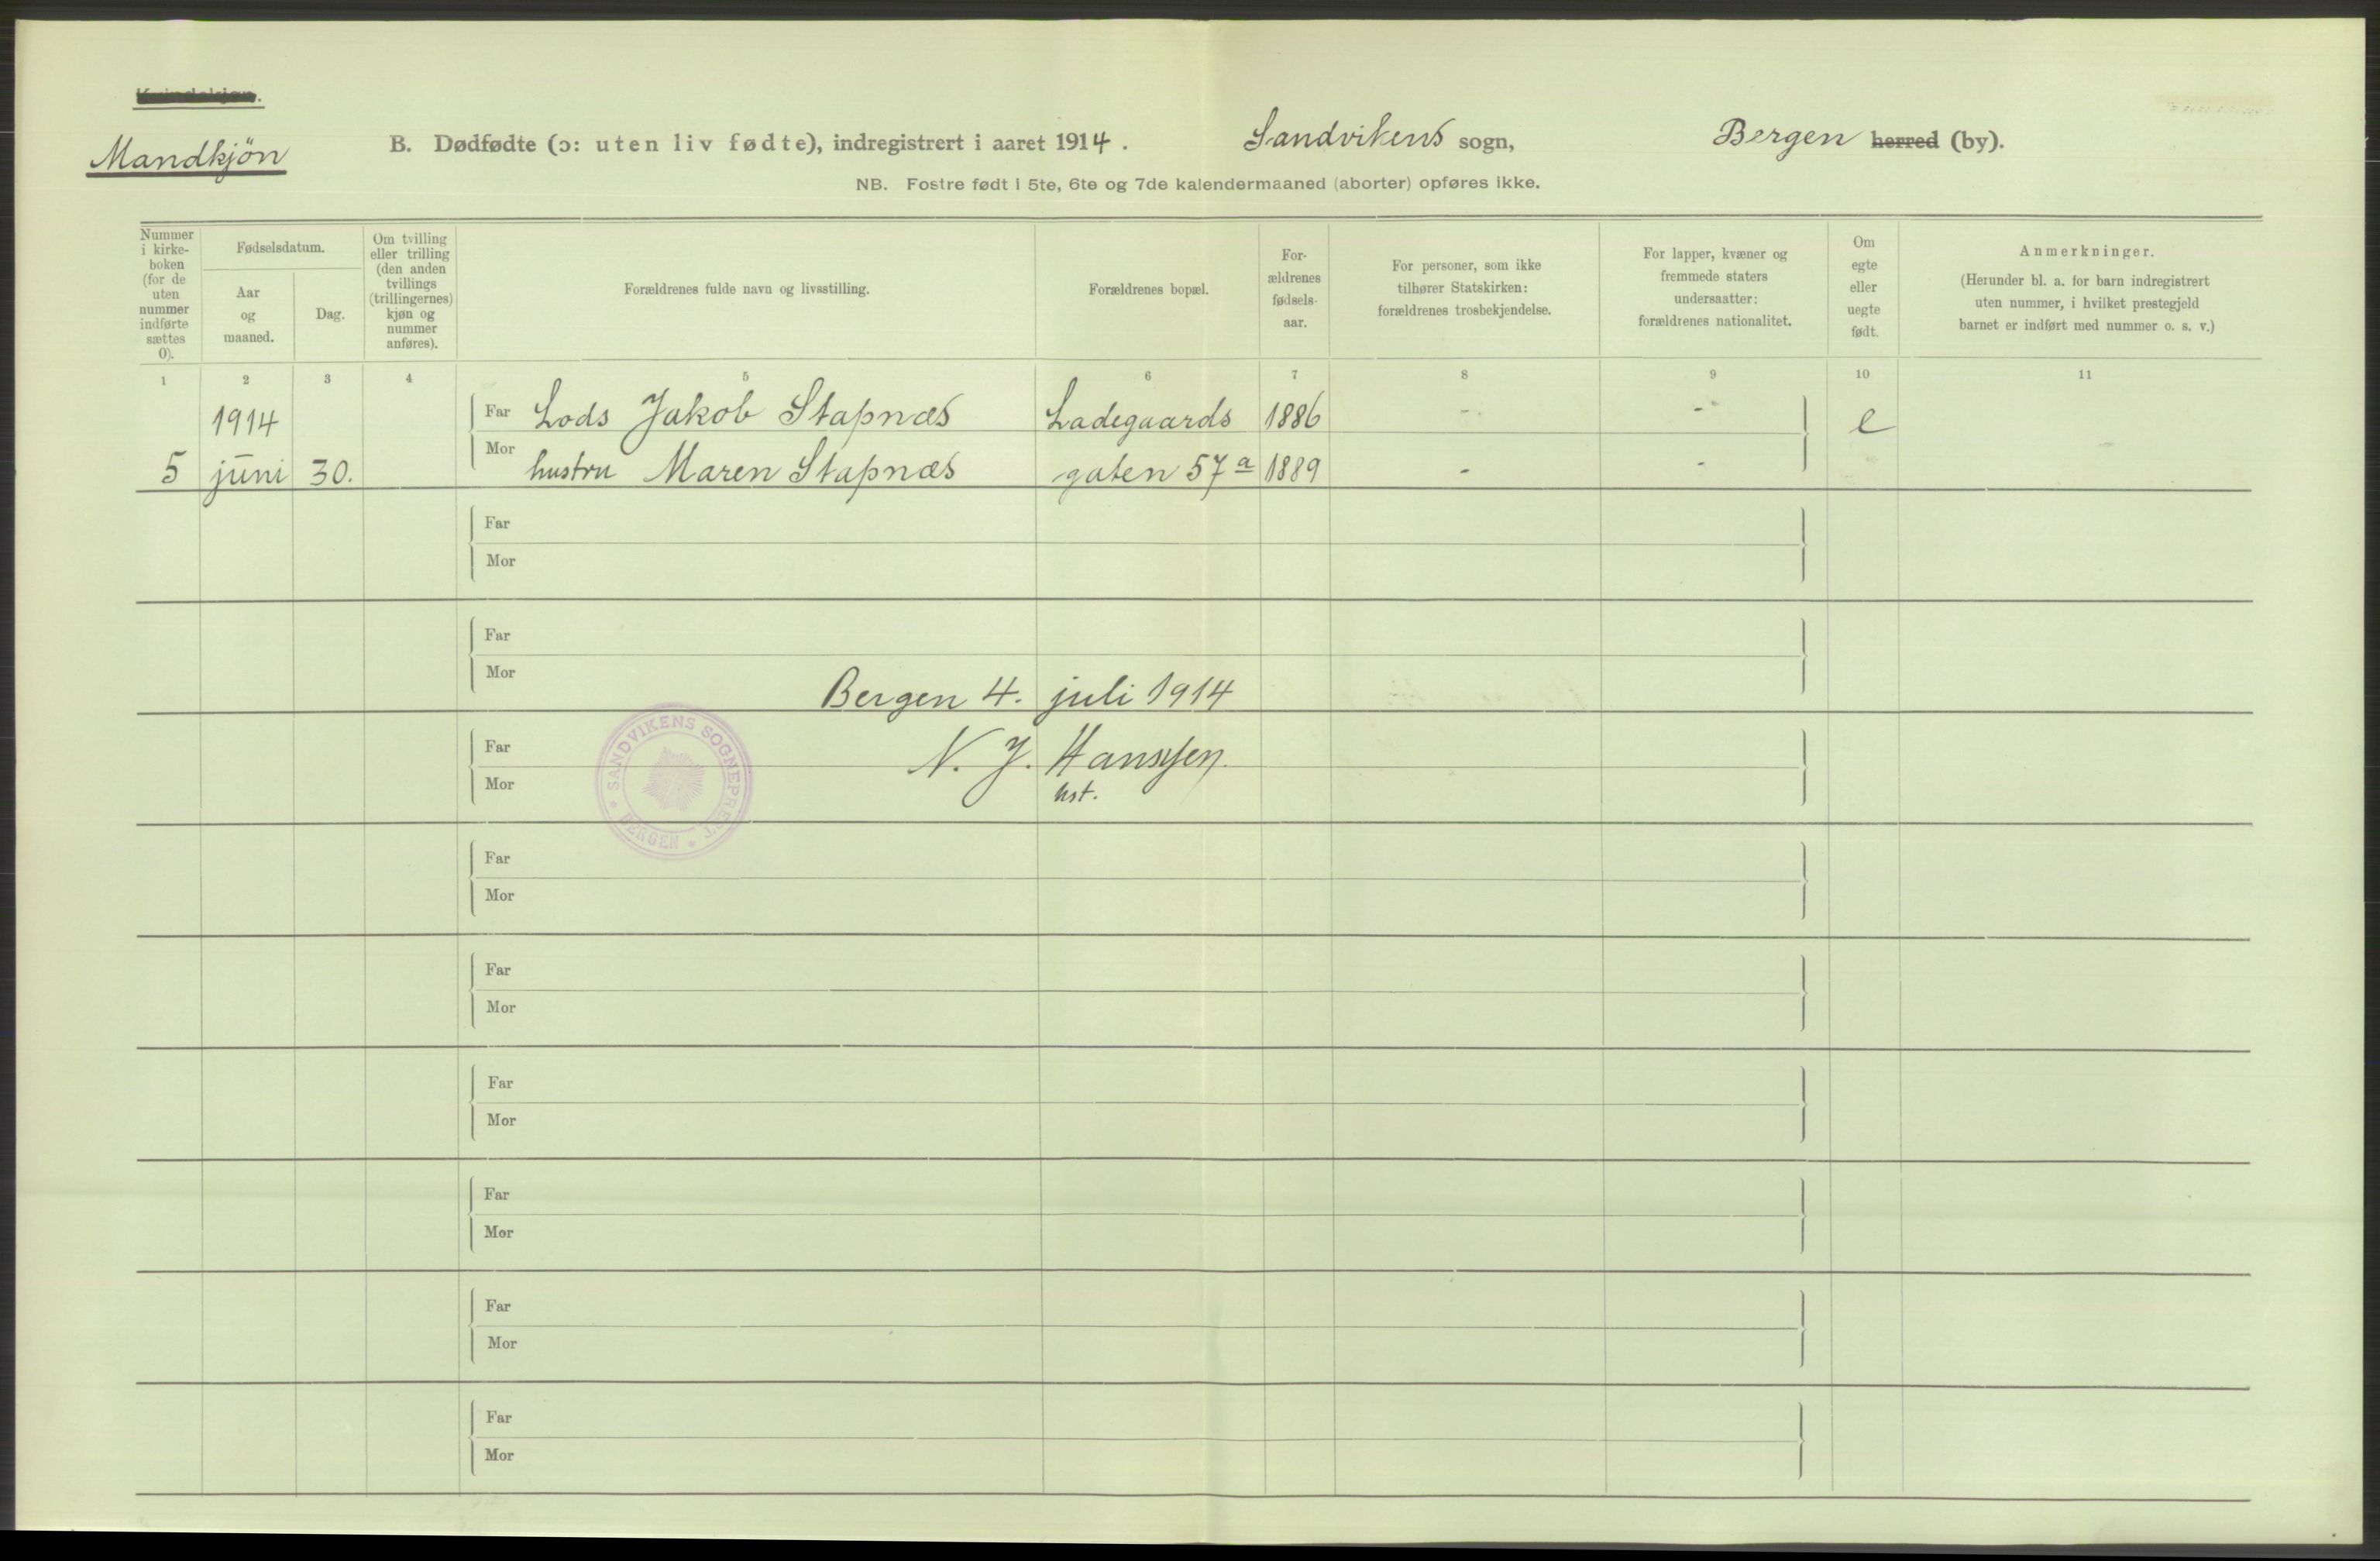 Mandkjön
B. Dødfødte (ɔ: uten liv fødte), indregistrert i aaret 1914. Sandvikens sogn, Bergen herred (by).
NB. Fostre født i 5te, 6te og 7de kalendermaaned (aborter) opføres ikke.
Nummer i kirke-boken (for de uten nummer indførte sættes 0).
Fødselsdatum.
Aar og maaned.
Dag.
Om tvilling eller trilling (den anden tvillings (trillingernes) kjøn og nummer anføres).
Forældrenes fulde navn og livsstilling.
Forældrenes bopæl.
For-ældrenes fødsels-aar.
For personer, som ikke tilhører Statskirken: forældrenes trosbekjendelse.
For lapper, kvæner og fremmede staters undersaatter: forældrenes nationalitet.
Om egte eller uegte født.
Anmerkninger. (Herunder bl. a. for barn indregistrert uten nummer, i hvilket prestegjeld barnet er indført med nummer o. s. v.)
1 2 3 4 5 6 7 8 9 10 11
1914 Far Lods Jakob Stapnæs Ladegaards 1886 - - e
5 juni 30. Mor hustru Maren Stapnæs gaten 57a 1889 - -
Far
Mor
Far
Mor
Bergen 4. juli 1914
Far N. J. Hanssen
Mor
SANDVIKENS SOGNEPREST BERGEN
Far
Mor
Far
Mor
Far
Mor
Far
Mor
Far
Mor
Far
Mor